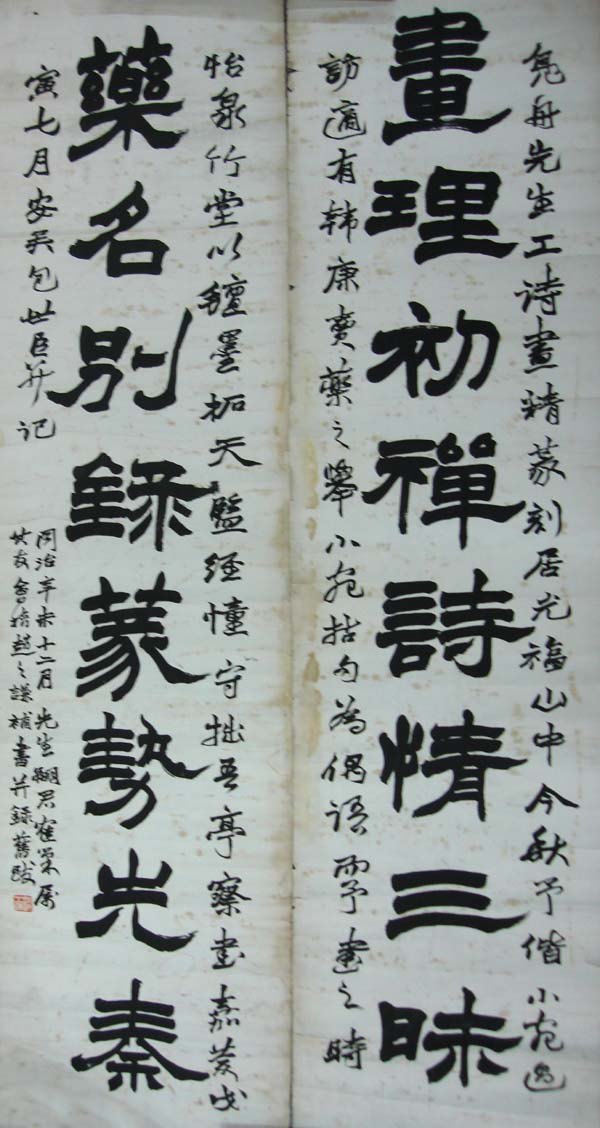 凫舟先生工诗畫精篆刻居光福山中今秋予偕小宛過
畫理初禪詩情三昧
訪適有韩康賣藥之舉小宛括句為偶语予畫之時
怡泉竹堂以墨拓天監經幢守拙吾亭寮書嘉慶戊
藥名別錄篆勢先秦
寅七月安吴包世臣并记
同治辛未十二月先生嗣君崔巢属
其友會稽趙之謙補書并錄舊跋